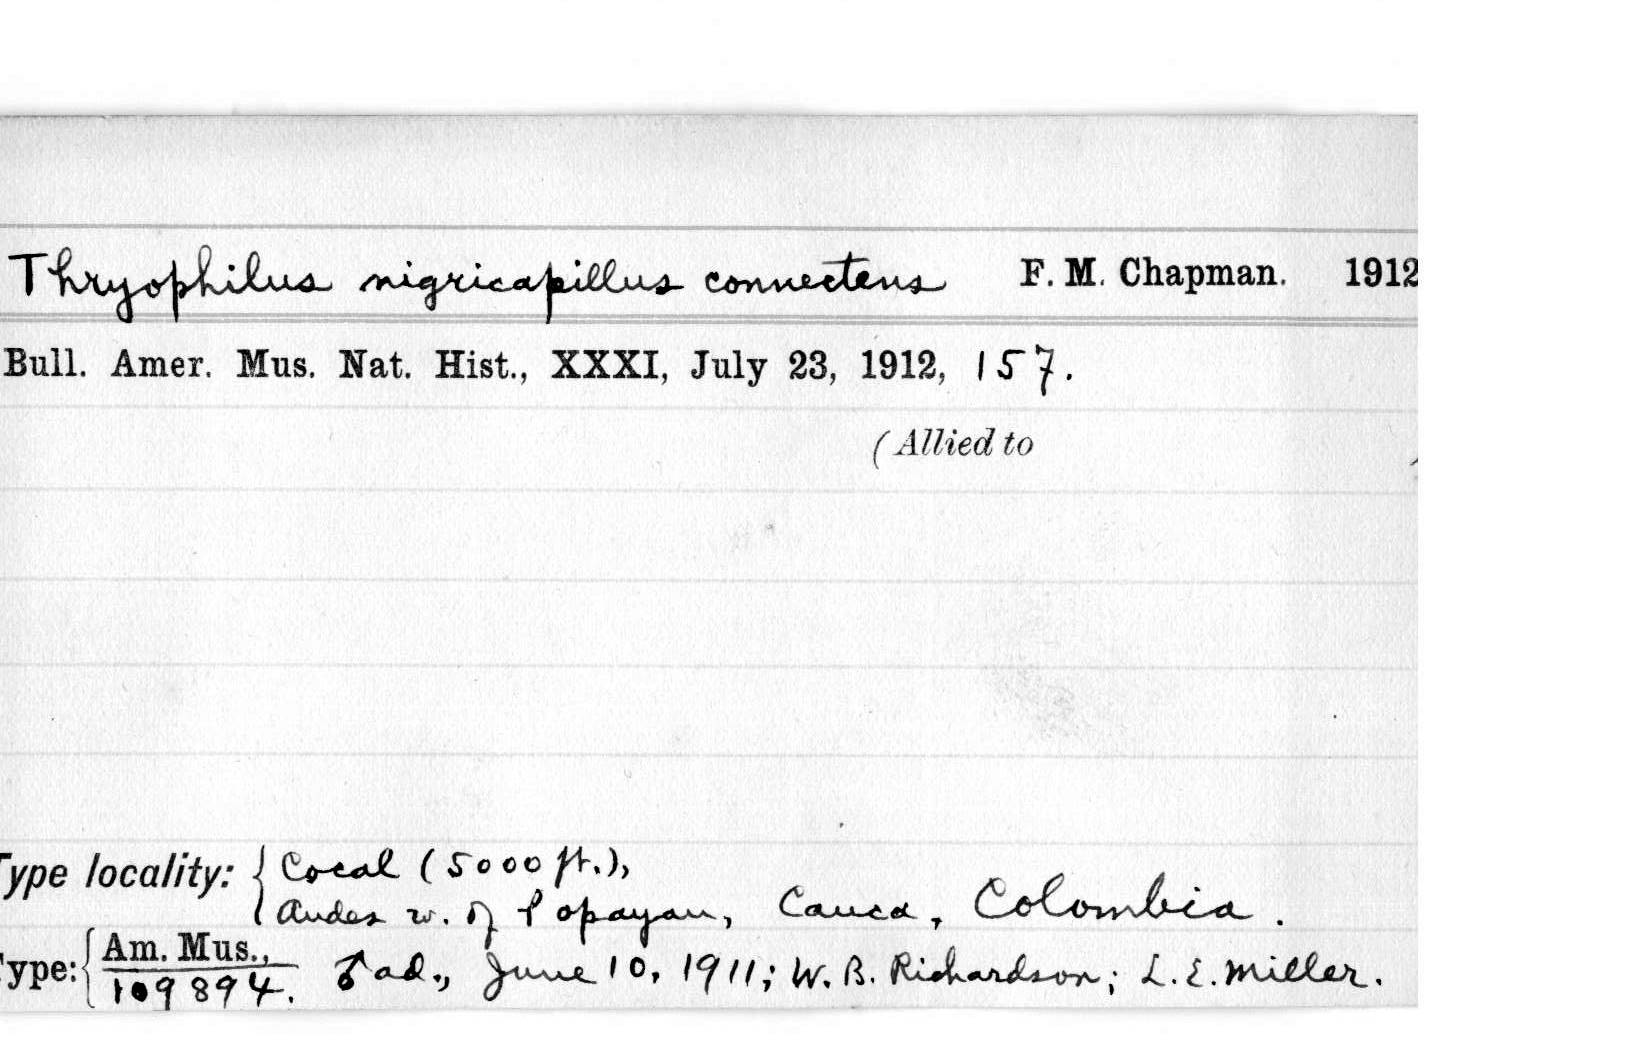 Thryophilus nigricapillus connectens F. M. Chapman. 1912
Bull. Amer. Mus. Nat. Hist., XXXI, July 23, 1912, 157.
(Allied to )
Type locality: { Cocal (5000 ft.),
Andes w. of Popayan, Cauca, Colombia.
Type: { Am. Mus.,
109894. ♂ ad., June 10, 1911; W. B. Richardson; L. E. Miller.